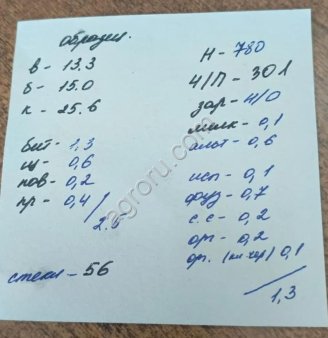 образец.
в - 13.3
б - 15.0
к - 25.6
бит - 1,3
щ - 0,6
пов - 0,2
пр - 0,4 /
2.6
стекл - 56
Н - 780
ч/п - 301
зар - н/о
мелк - 0,1
исп - 0,1
фуз - 0,7
с.с - 0,2
ор - 0,2
0,1
1,3
agroru.com